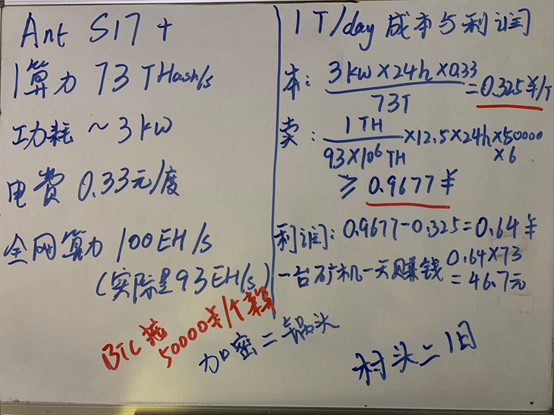 Ant S17+
算力 73 THash/s
功耗 ~3kw
电费 0.33元/度
全网算力 100EH/s
(实际是93EH/s)
BTC 按
50000¥/个算
加密二锅头
1T/day 成本与利润
本: 3kw×24h×0.33
73T
=0.325¥/T
卖: 1TH
93×10⁶TH
×12.5×24h×50000
×6
≥ 0.9677¥
利润: 0.9677-0.325=0.64¥
一台矿机一天赚钱 0.64×73
=46.7元
村头二旧